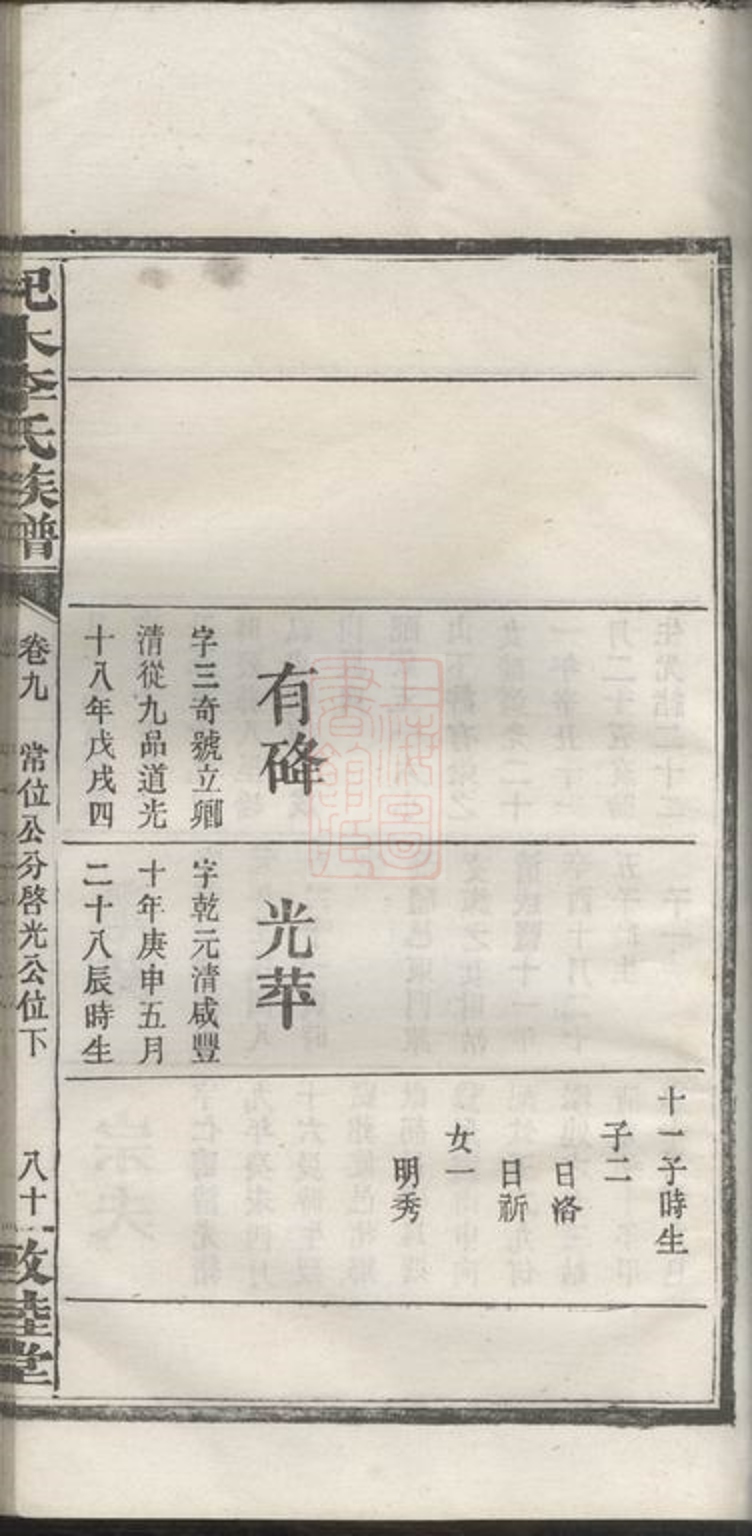 有硿
字三奇號立卿
清從九品道光
十八年戊戌四
光苹
字乾元清咸豐
十年庚申五月
二十八辰時生
十一子時生
子二
日洛
日祈
女一
明秀
李氏族譜
卷九 常位公分啓光公位下 八十一
敦睦堂